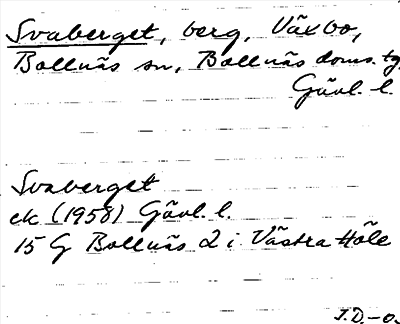 Svaberget, berg, Växbo,
Bollnäs sn, Bollnäs doms. tg
Gävl. l.
Svaberget
ek (1958) Gävl. l.
15 G Bollnäs 2 i Västra Höle
J.D.-o.